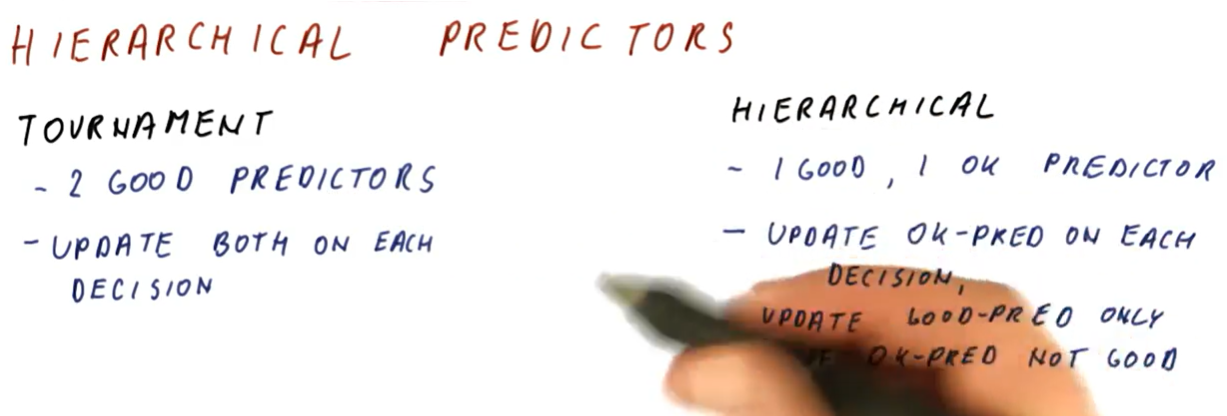 HIERARCHICAL PREDICTORS
TOURNAMENT
- 2 GOOD PREDICTORS
- UPDATE BOTH ON EACH
DECISION
HIERARCHICAL
- 1 GOOD, 1 OK PREDICTOR
- UPDATE OK-PRED ON EACH
DECISION,
UPDATE GOOD-PRED ONLY
OK-PRED NOT GOOD